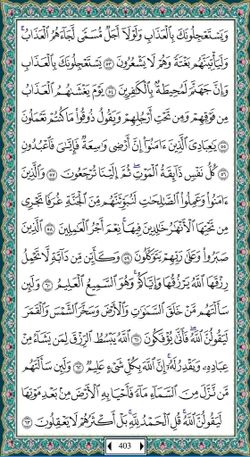 وَيَسْتَعْجِلُونَكَ بِالْعَذَابِ وَلَوْلَا أَجَلٌ مُّسَمًّى لَّجَاءَهُمُ الْعَذَابُ
وَلَيَأْتِيَنَّهُم بَغْتَةً وَهُمْ لَا يَشْعُرُونَ ٥٣ يَسْتَعْجِلُونَكَ بِالْعَذَابِ
وَإِنَّ جَهَنَّمَ لَمُحِيطَةٌ بِالْكَافِرِينَ ٥٤ يَوْمَ يَغْشَاهُمُ الْعَذَابُ
مِن فَوْقِهِمْ وَمِن تَحْتِ أَرْجُلِهِمْ وَيَقُولُ ذُوقُوا مَا كُنتُمْ تَعْمَلُونَ
٥٥ يَاعِبَادِيَ الَّذِينَ ءَامَنُوا إِنَّ أَرْضِي وَاسِعَةٌ فَإِيَّايَ فَاعْبُدُونِ
٥٦ كُلُّ نَفْسٍ ذَائِقَةُ الْمَوْتِ ثُمَّ إِلَيْنَا تُرْجَعُونَ ٥٧ وَالَّذِينَ
ءَامَنُوا وَعَمِلُوا الصَّالِحَاتِ لَنُبَوِّئَنَّهُم مِّنَ الْجَنَّةِ غُرَفًا تَجْرِي
مِن تَحْتِهَا الْأَنْهَارُ خَالِدِينَ فِيهَا نِعْمَ أَجْرُ الْعَامِلِينَ ٥٨ الَّذِينَ
صَبَرُوا وَعَلَى رَبِّهِمْ يَتَوَكَّلُونَ ٥٩ وَكَأَيِّن مِّن دَابَّةٍ لَّا تَحْمِلُ
رِزْقَهَا اللَّهُ يَرْزُقُهَا وَإِيَّاكُمْ وَهُوَ السَّمِيعُ الْعَلِيمُ ٦٠ وَلَئِن
سَأَلْتَهُم مَّنْ خَلَقَ السَّمَاوَاتِ وَالْأَرْضَ وَسَخَّرَ الشَّمْسَ وَالْقَمَرَ
لَيَقُولُنَّ اللَّهُ فَأَنَّى يُؤْفَكُونَ ٦١ اللَّهُ يَبْسُطُ الرِّزْقَ لِمَن يَشَاءُ مِنْ
عِبَادِهِ وَيَقْدِرُ لَهُ إِنَّ اللَّهَ بِكُلِّ شَيْءٍ عَلِيمٌ ٦٢ وَلَئِن سَأَلْتَهُم
مَّن نَّزَّلَ مِنَ السَّمَاءِ مَاءً فَأَحْيَا بِهِ الْأَرْضَ مِن بَعْدِ مَوْتِهَا
لَيَقُولُنَّ اللَّهُ قُلِ الْحَمْدُ لِلَّهِ بَلْ أَكْثَرُهُمْ لَا يَعْقِلُونَ ٦٣
403